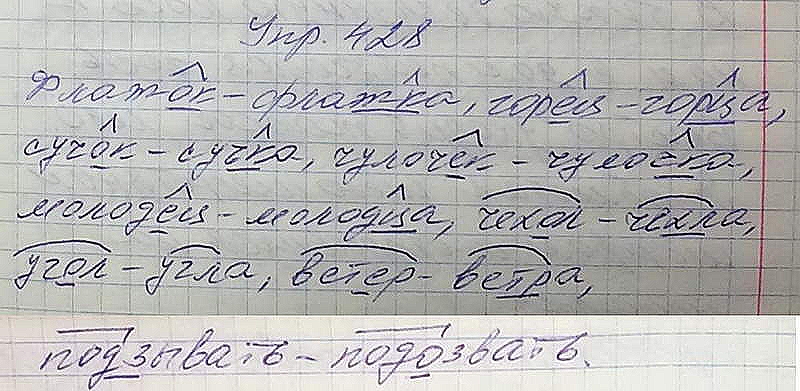 Упр. 428
Флажок - флажка, горец - горца,
сучок - сучка, чулочек - чулочка,
молодец - молодца, чехол - чехла,
угол - угла, ветер - ветра,
подзывать - подозвать.